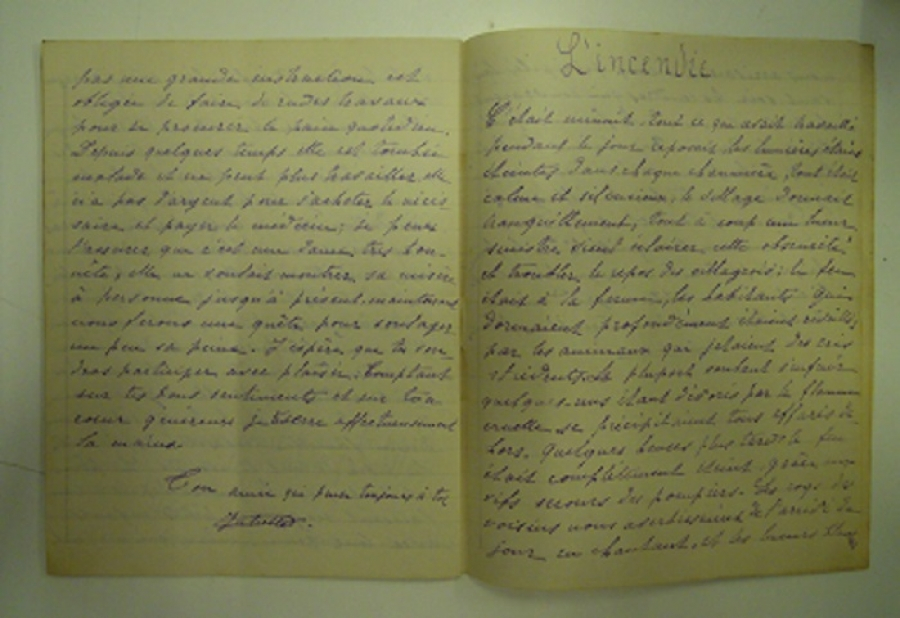 pas une grande instruction est
obligée de faire de rudes travaux
pour se procurer le pain quotidien.
Depuis quelques temps elle est tombée
malade et ne peut plus travailler elle
n'a pas d'argent pour s'acheter le néces-
saire et payer le médecin; je peux
t'assurer que c'est une dame très hon-
nête, elle ne voulait montrer sa misère
à personne jusqu'à présent. maintenant
nous ferons une quête pour soulager
un peu sa peine. J'espère que tu vou-
dras participer avec plaisir. Comptant
sur tes bons sentiments et sur ton
cœur généreux je te serre affectueusement
la main.
Ton amie qui pense toujours à toi
L'incendie
C'était minuit. tout ce qui avait travaillé
pendant le jour reposait les lumières étaient
éteintes dans chaque chaumière, tout était
calme et silencieux, le village dormait
tranquillement, tout à coup une lueur
sinistre vient éclairer cette obscurité
et troubler le repos des villageois: le feu
était à la ferme, les habitants qui
dormaient profondément étaient réveillés
par les animaux qui jetaient des cris
stridents. la plupart voulant s'enfuir
quelques-uns étant dévorés par la flamme
cruelle se précipitaient tous effarés de-
hors. Quelques heures plus tard le feu
était complètement éteint, grâce aux
vifs secours des pompiers. Les coqs des
voisins nous avertissaient de l'arrivée du
jour en chantant, et les lueurs